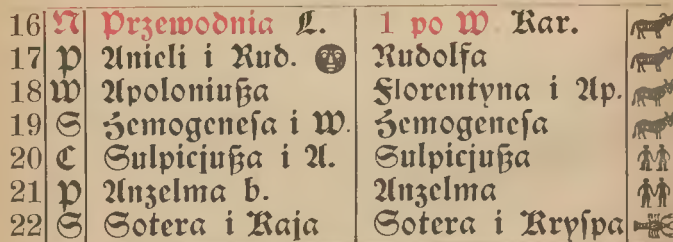 16 N Przewodnia L. 1 po W Kar.
17 P Anieli i Rud. Rudolfa
18 W Apoloniuſza Florentyna i Ap.
19 S Hemogeneſa i W. Hemogeneſa
20 C Sulpicjuſza i A. Sulpicjuſza
21 P Anzelma b. Anzelma
22 S Sotera i Kaja Sotera i Kryſpa